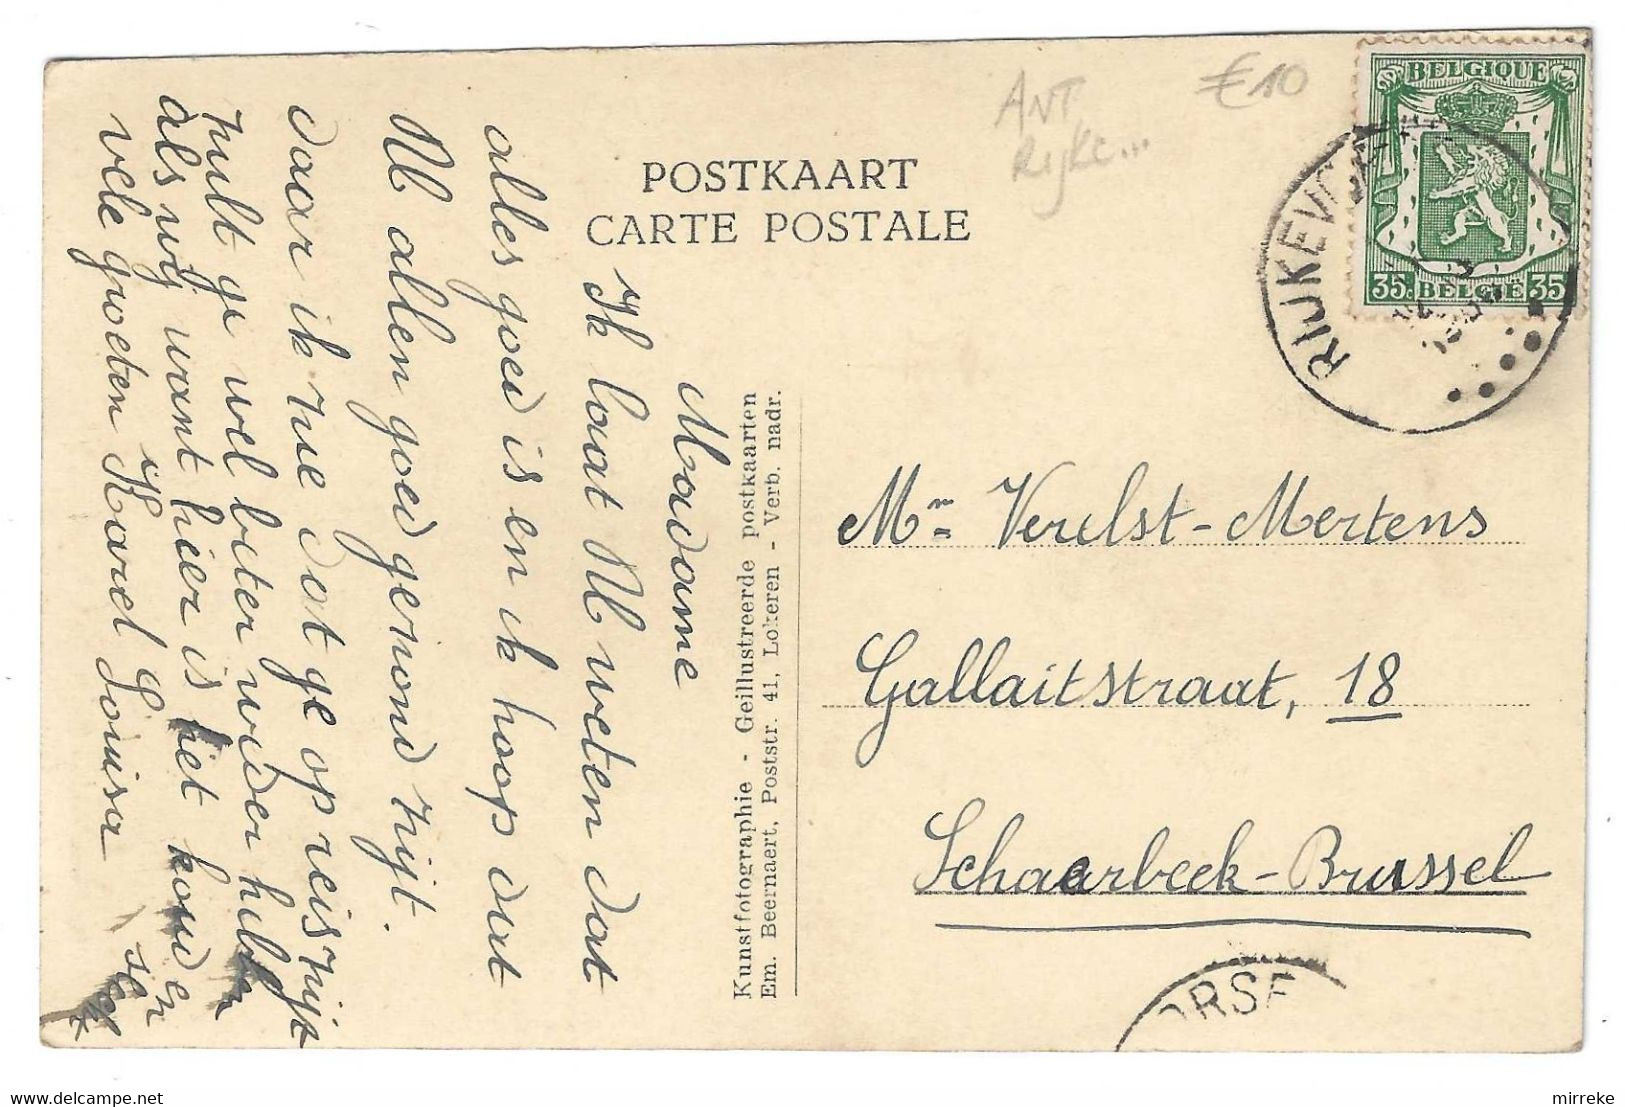 ANT
Rijke...
€10
BELGIQUE
35c BELGIË 35
RIJKEVORSEL
POSTKAART
CARTE POSTALE
Madame
Ik laat Ul weten dat
alles goed is en ik hoop dat
Ul allen goed gezond zijt.
daar ik zie dat ge op reis zijt
zult ge wel beter weder hebben
als wij want hier is het koud en
vele groeten Karel Louisa
Kunstfotographie - Geillustreerde postkaarten
Em. Beernaert, Poststr. 41, Lokeren - Verb. nadr.
Mm Verelst-Mertens
Gallaitstraat, 18
Schaarbeek-Brussel
ORSE
mirreke